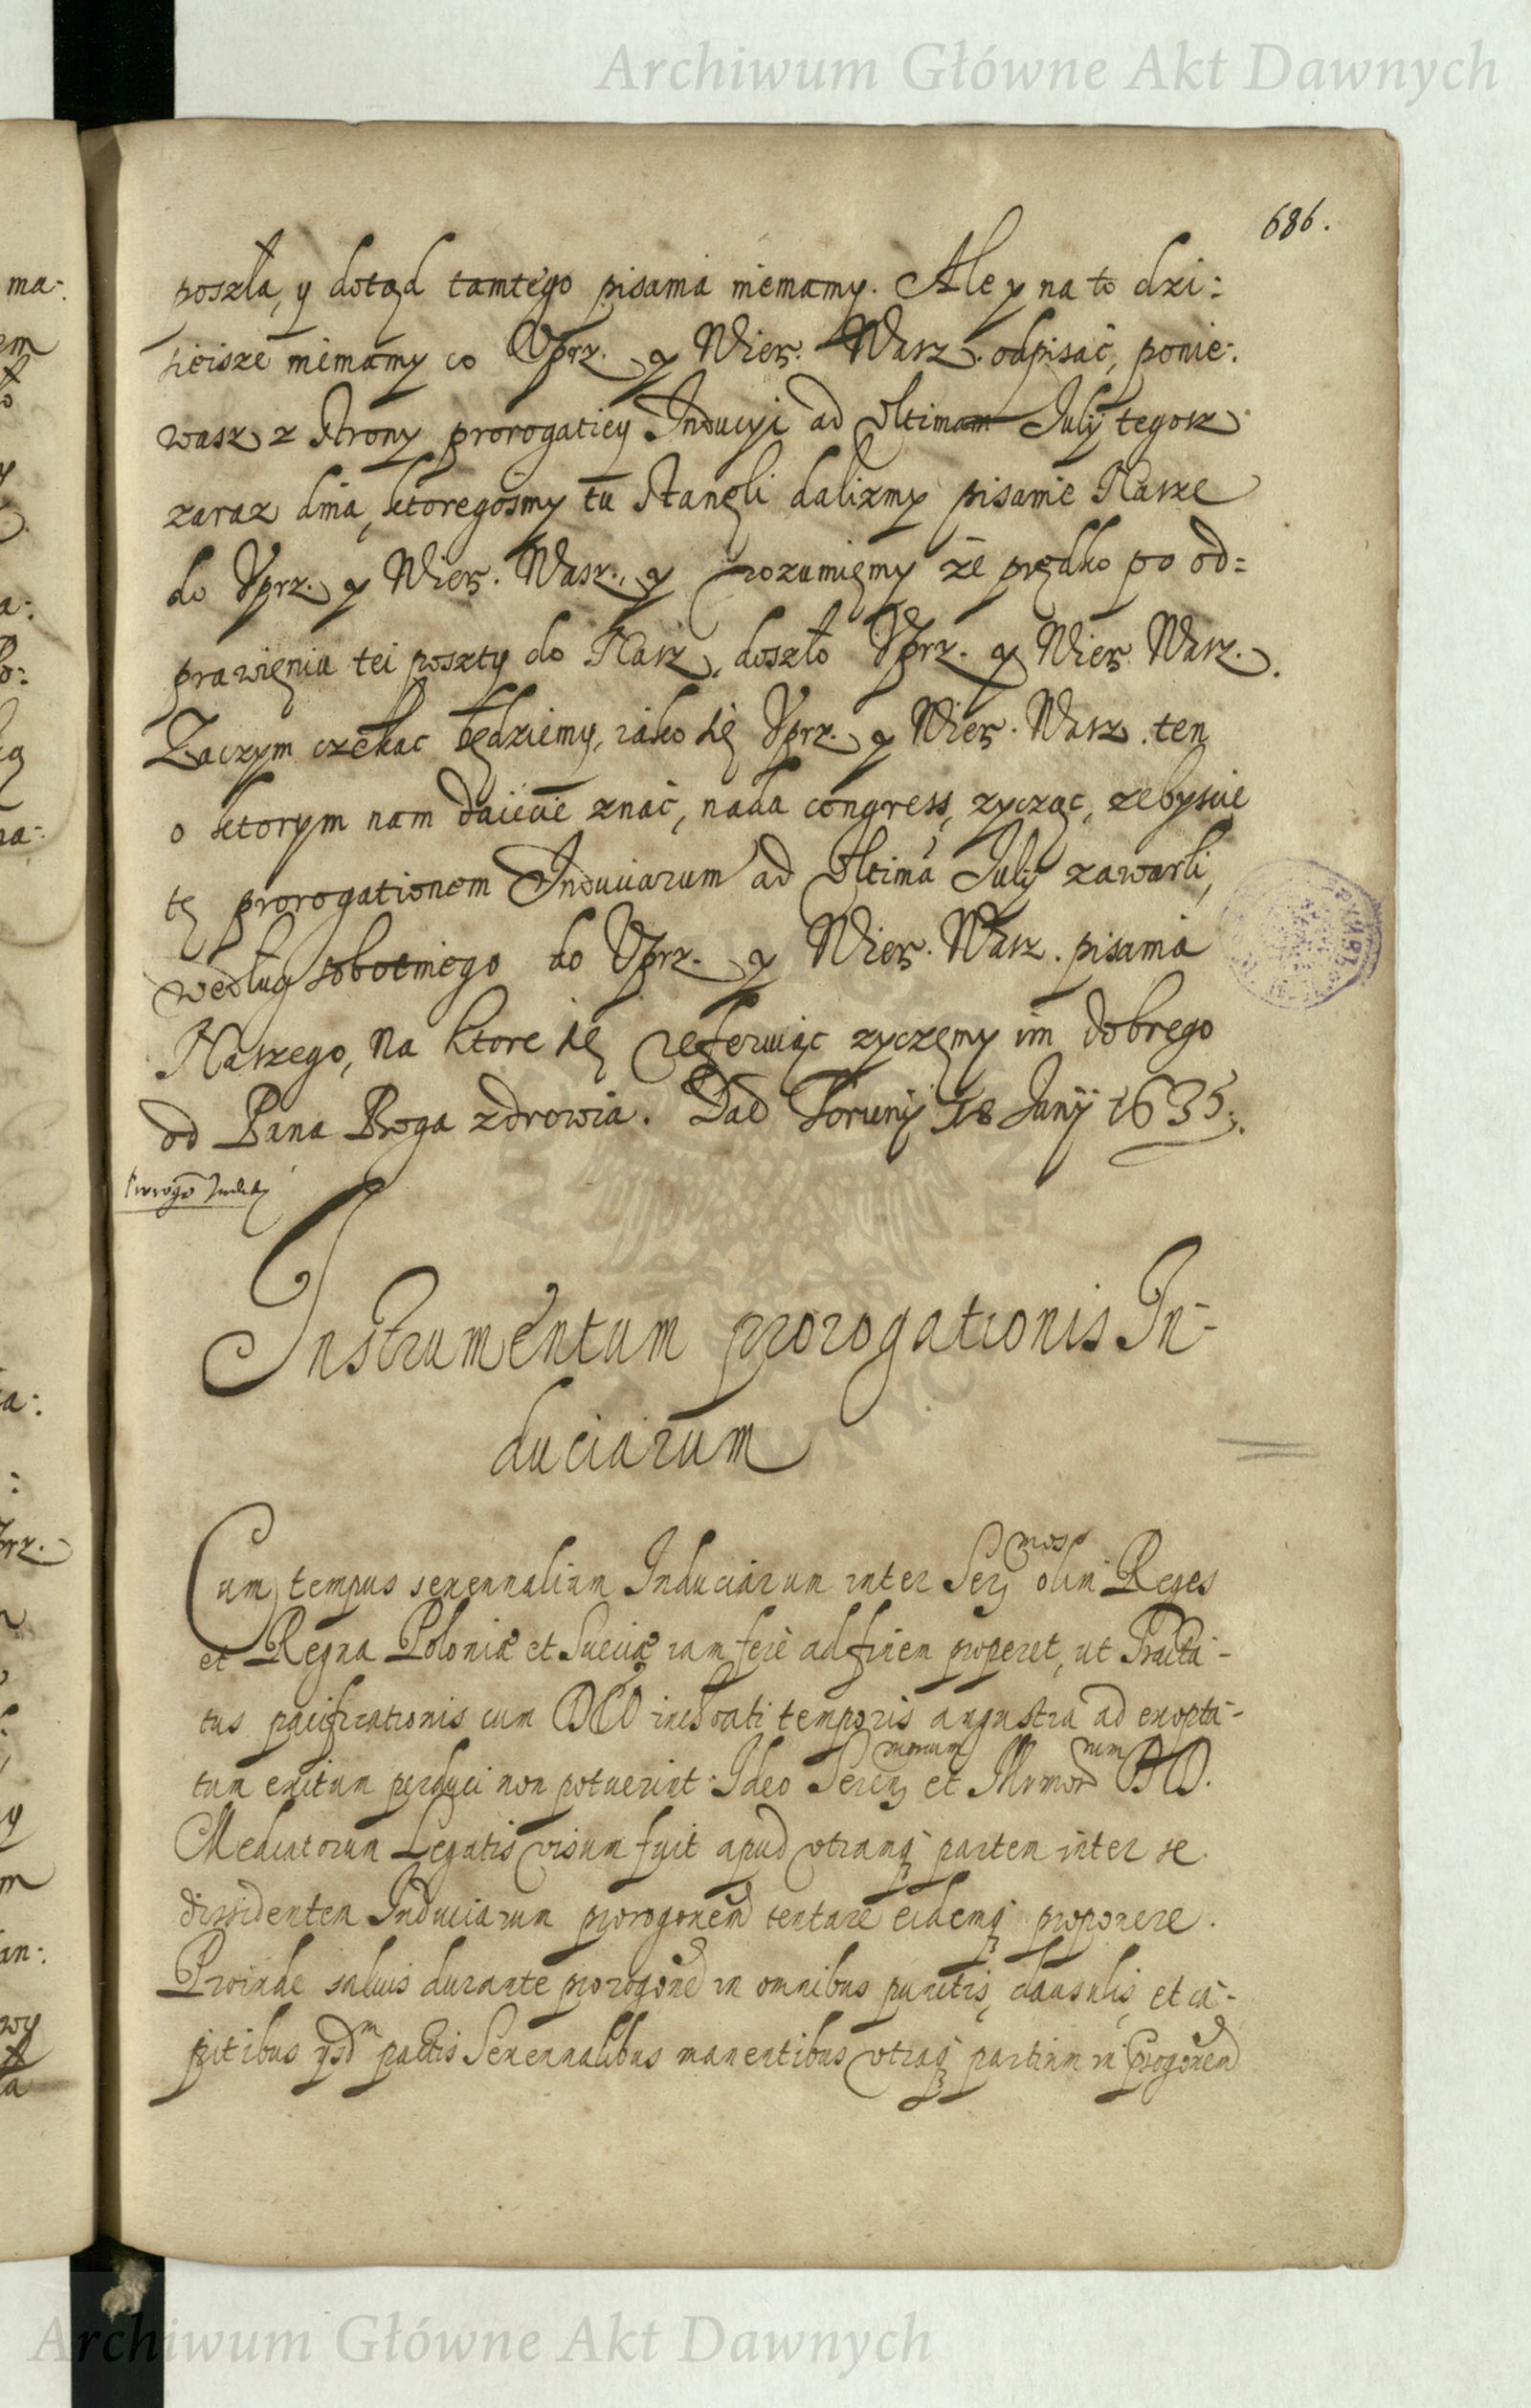 Archiwum Główne Akt Dawnych
686.
poszła, y dotąd tamtego pisania niemamy. Ale y na to dzi:
sieisze niemamy co Vprz. y Wier. Wasz. odpisać, ponie:
wasz z strony prorogatiey Inducyi ad Vltimam Julÿ tegosz
zaraz dnia, ktoregosmy tu stanęli dalismy pisanie Nasze
do Vprz. y Wier. Wasz., y rozumięmy że prędko po od=
prawieniu tei poszty do Nasz, doszło Vprz. y Wier. Wasz.
Zaczym czekac będziemy, iako się Vprz. y Wier. Wasz. ten
o ktorym nam daiecie znać, nada congress, zycząc, zebyscie
tę prorogationem Induciarum ad Vltimã Julÿ zawarli,
według sobotniego do Vprz. y Wier. Wasz. pisania
Naszego, na ktore się referuiąc zyczęmy im dobrego
od Pana Boga zdrowia. Dad Torunÿ 18 Junÿ 1635.
Instrumentum prorogationis In-
duciarum
Cum tempus sexennalium Induciarum inter Ser mos olim Reges
et Regna Poloniæ et Sueciæ iam ferè ad finem properet, ut Tracta-
tus pacificationis cum DEO inchoati temporis angustia ad exopta-
tum exitum perduci non potuerint: Ideo Seren morum et Illmor rum DD.
Mediatorum Legatis visum fuit apud vtramq partem inter se
dissidentem Induciarum prorogonem tentare eidemq proponere.
Proinde saluis durante progone in omnibus punctis, clausulis, et ca-
pitibus ijsd m pactis Sexennalibus manentibus vtraq partium in progonem
Archiwum Główne Akt Dawnych